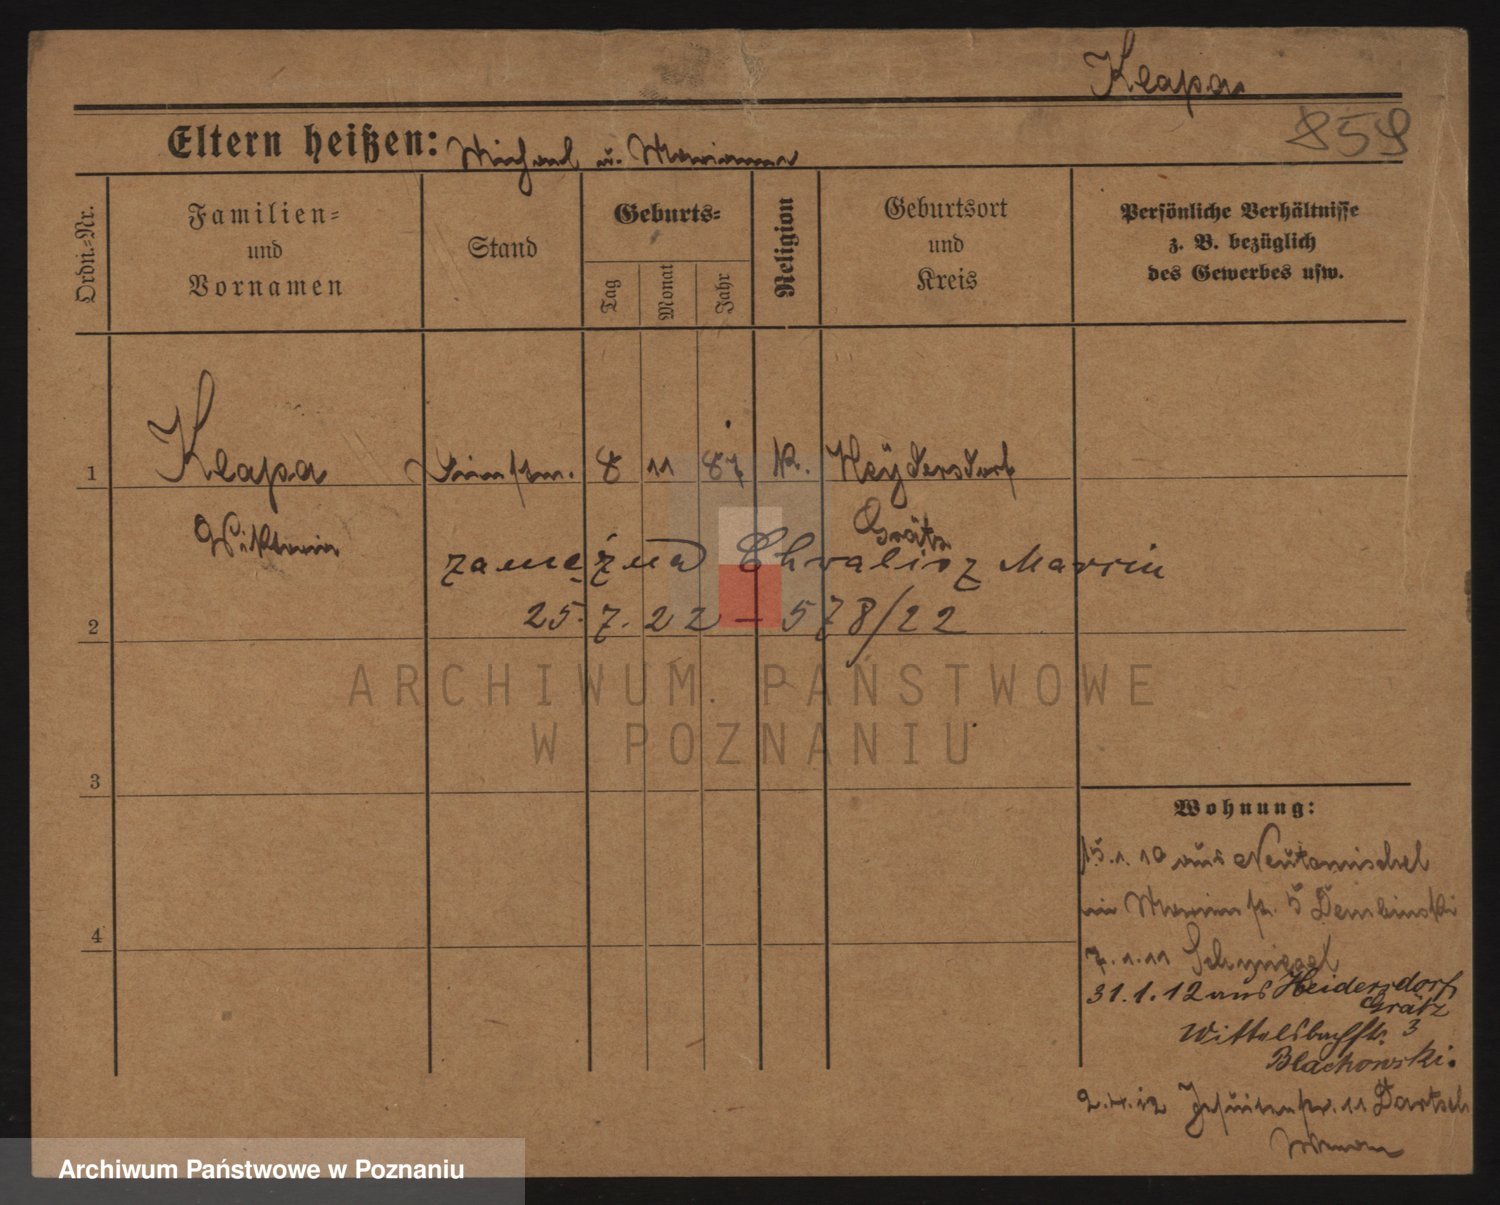 Klapa
859
Eltern heißen: Michael u. Marianna
Ordn.-Nr.
Familien-
und
Vornamen
Stand
Geburts-
Tag
Monat
Jahr
Religion
Geburtsort
und
Kreis
Persönliche Verhältnisse
z. B. bezüglich
des Gewerbes usw.
1 Klapa 8 11 87 k. Heydersdorf
Grätz
Wiktoria
zamężna Chwalisz Marcin
2 25.7.22 – 578/22
ARCHIWUM PAŃSTWOWE
W POZNANIU
3
4
Wohnung:
15.1.10 aus Neutomischel
5 Dembinski
7.1.11 Schmiegel
31.1.12 aus Heidersdorf
Grätz
Wittelsbachstr. 3
Blachowski.
2.4.12 Jesuitenstr. 11 Bartsch
Archiwum Państwowe w Poznaniu